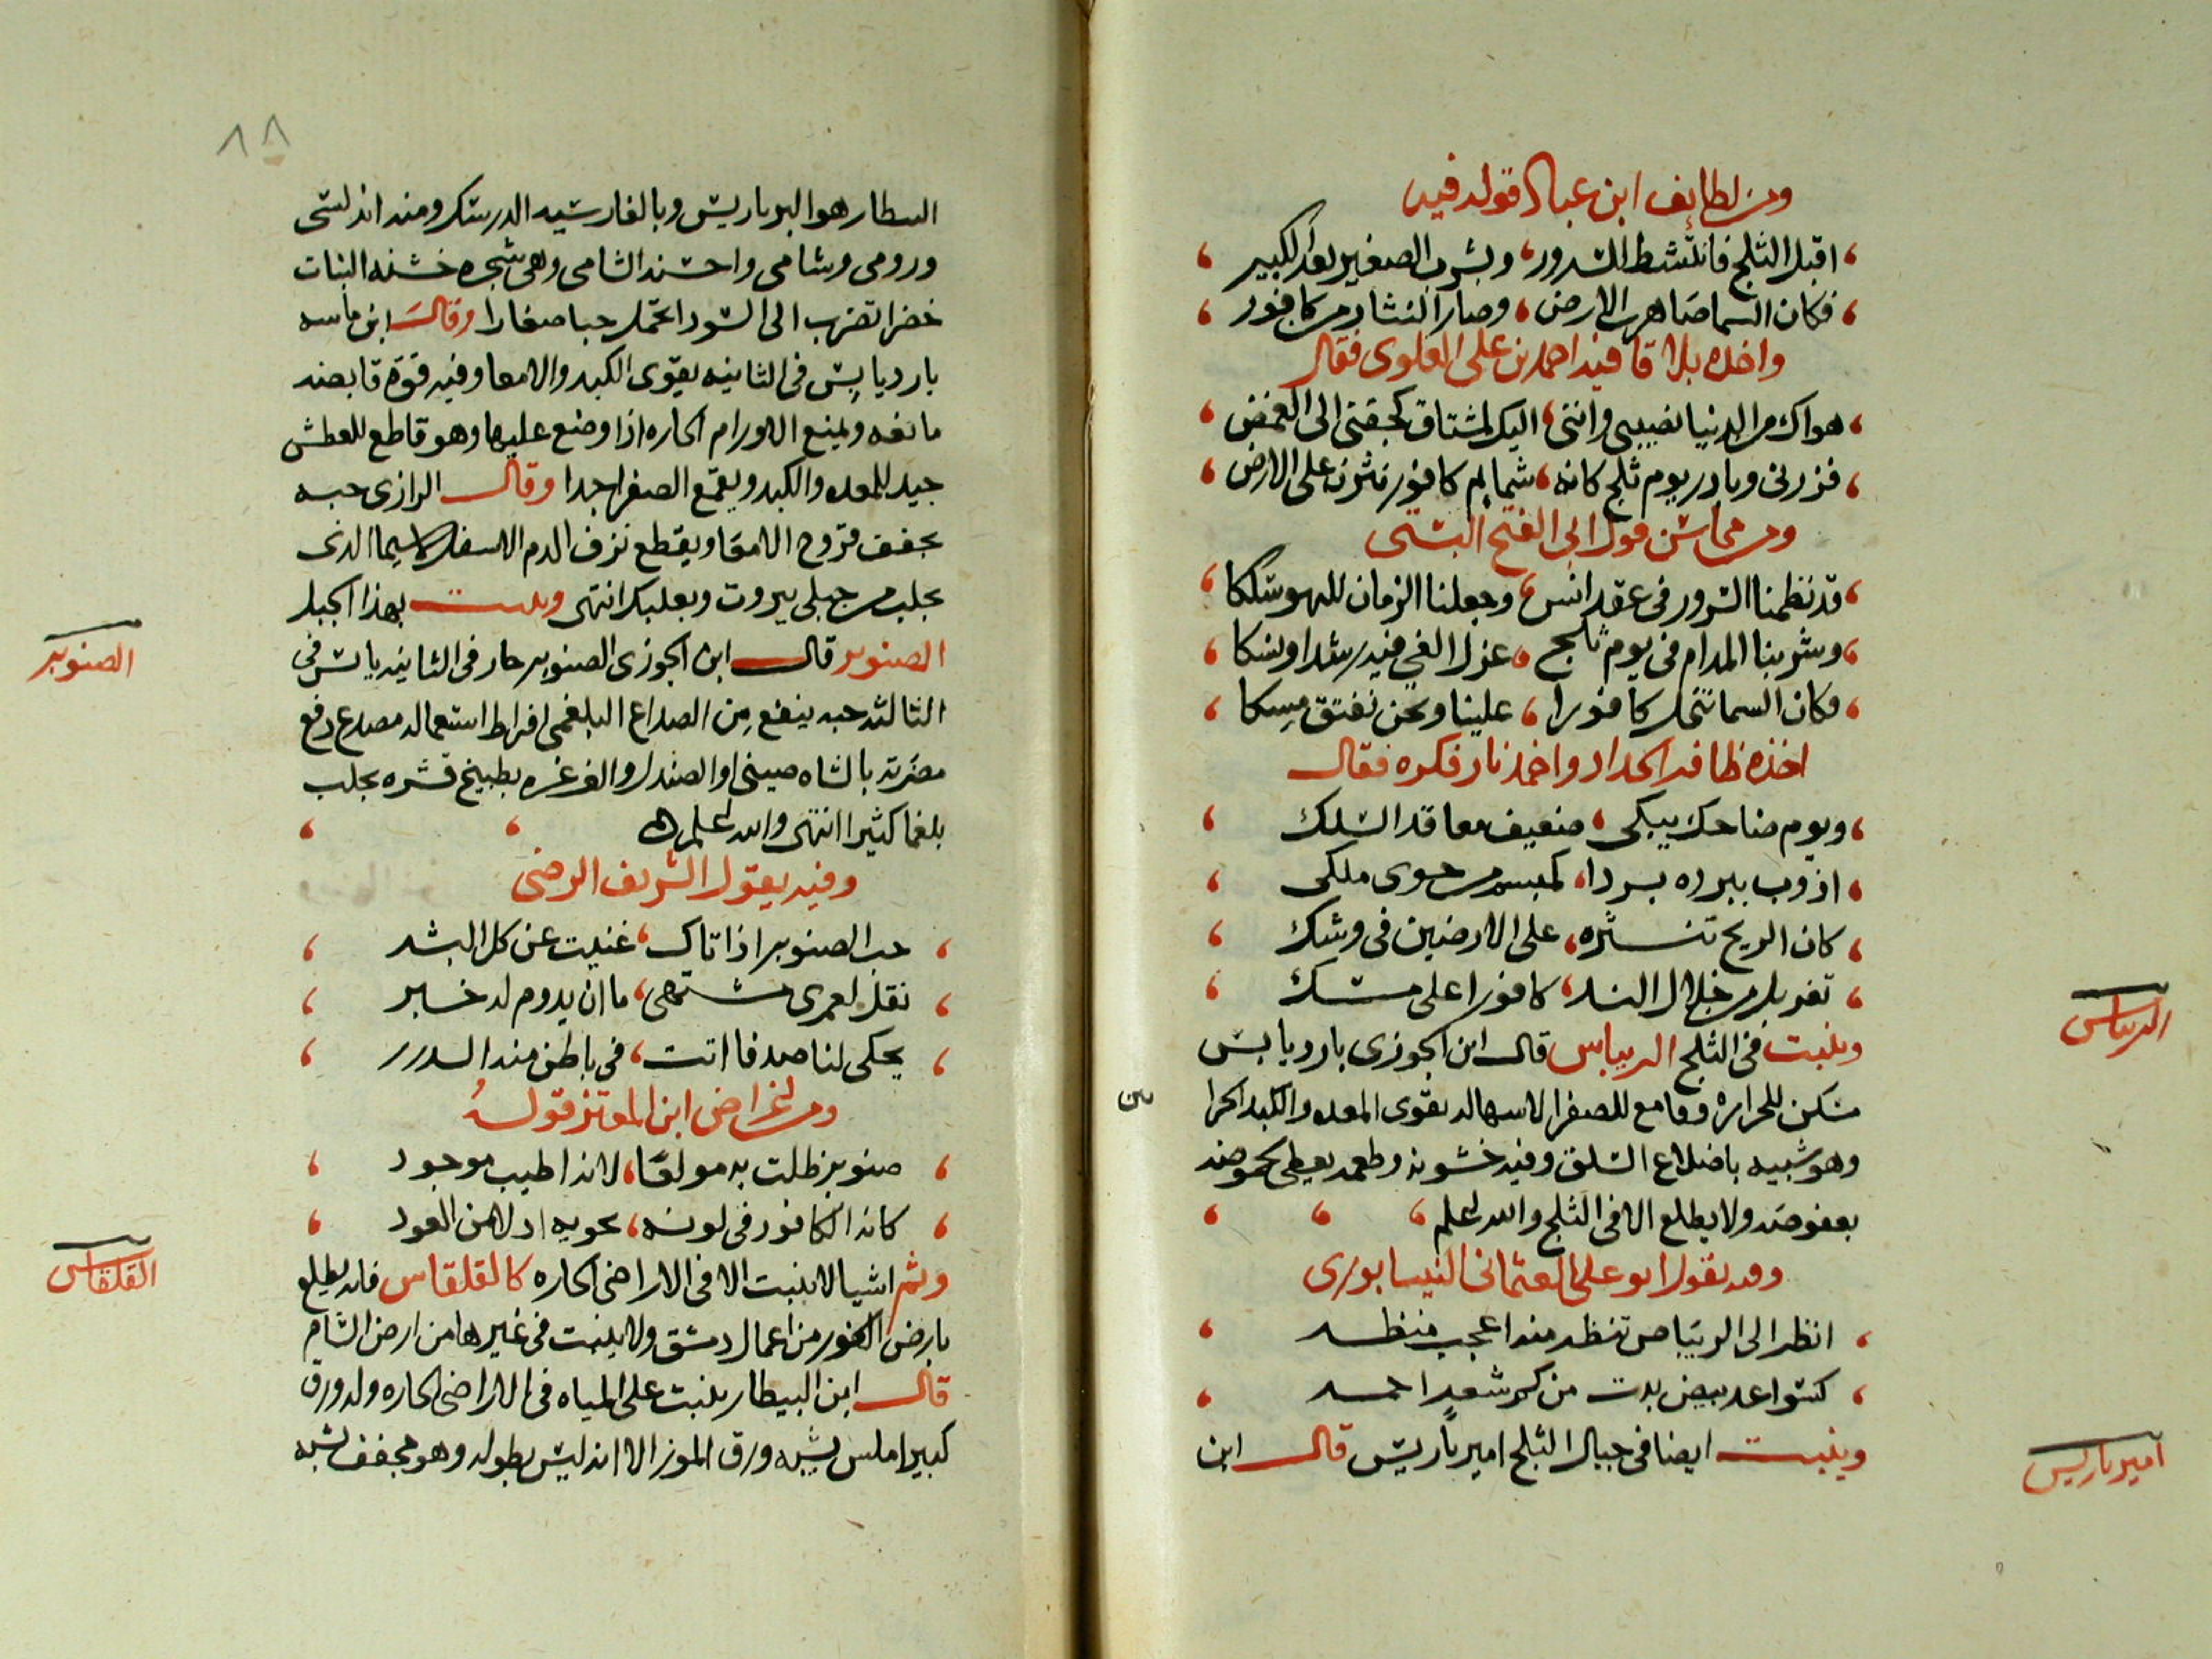 ومن لطايف ابن عباد قوله فيه
اقبل الثلج فانشط للسرور، وبشرب الصغير بعد الكبير
فكان السما صاهرت الارض، وصار النثار من كافور
واخذه بلاقافيه احمد بن على العلوى فقال
هواك من الدنيا نصيبى وانتى، اليك لمشتاق كجفنى الى الغمض
فزرنى وبادر يوم ثلج كانه، شمايم كافور نثرن على الارض
ومن محاسن قول ابى الفتح البستى
قد نظمنا السرور فى عقد انس، وجعلنا الزمان للهو سلكا
وشربنا المدام فى يوم ثلج، عزل الغي فيه رشدا ونسكا
فكان السما تنخل كافورا، علينا ونحن نفتق مسكا
اخذه ظافر الحداد واخمد نار فكره فقال
ويوم ضاحك يبكى، ضعيف معاقد السلك
اذوب ببرده بردا، لمبسم من حوى ملكى
كان الريح تنثره، على الارضين فى وشك
تغربل من خلال الند، كافورا على مسك
وينبت فى الثلج الريباس قال ابن الجوزى بارد يابس
مسكن للحراره وقامع للصفرا الاسهال يقوى المعده والكبد الحرا
وهو شبيه باضلاع السلق وفيه خشونه وطعمه يعطى بحموضه
بعفوصه ولا يطلع الا فى الثلج والله اعلم
وفيه يقول ابو على العثمانى النيسابورى
انظر الى الريباس تنظر منه اعجب منظر
كسواعد بيض بدت من كم شعر احمر
وينبت ايضا فى جبال الثلج امير باريس قال ابن
الريباس
امير باريس
٨٨
البيطار هو البرباريس وبالفارسيه الدرشك ومنه اندلسى
ورومى وشامى واحسنه الشامى وهى شجره خشنه النبات
خضرا تضرب الى السواد تحمل حبا صغارا وقال ابن ماسه
بارد يابس فى الثانيه يقوى الكبد والامعا وفيه قوة قابضه
مانعه ويمنع الاورام الحاره اذا وضع عليها وهو قاطع للعطش
جيد للمعده والكبد ويقمع الصفرا جدا وقال الرازى حبه
يجفف قروح الامعا ويقطع نزف الدم الاسفل لاسيما الذى
يجلب من جبلى بيروت وبعلبك انتهى وينبت بهذا الجبل
الصنوبر قال ابن الجوزى الصنوبر حار فى الثانيه يابس فى
الثالثه حبه ينفع من الصداع البلغمى افراط استعماله مصدع دفع
مضرته بالشاه صينى او الصندل والغرغره بطبيخ قشره يجلب
بلغما كثيرا انتهى والله اعلم
وفيه يقول الشريف الرضى
حب الصنوبر اذا اتاك، غنيت عن كل البشر
نقل لعمرى مشتهى، ما ان يدوم له خبر
يحكى لنا صدفا اتت، فى باطن منه الدرر
ومن اغراض ابن المعتز قوله
صنوبر ظلت به مولعا، لانه اطيب موجود
كانه الكافور فى لونه، يحويه ادراهن العود
وثم اشيا لا ينبت الا فى الاراضى الحاره كالقلقاس فانه يطلع
بارض الغور من اعمال دمشق ولا ينبت فى غيرها من ارض الشام
قال ابن البيطار ينبت على المياه فى الاراضى الحاره وله ورق
كبير املس يشبه ورق الموز الا انه ليس بطوله وهو مجفف يشبه
الصنوبر
القلقاس